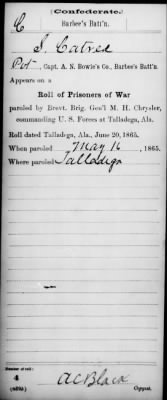 (Confederate.)
C Barbee's Batt'n.
J. Catree
Pvt, Capt. A. N. Bowle's Co., Barbee's Batt'n.
Appears on a
Roll of Prisoners of War
paroled by Brevt. Brig. Gen'l M. H. Chrysler,
commanding U. S. Forces at Talladega, Ala.
Roll dated Talladega, Ala., June 20, 1865.
When paroled May 16, 1865.
Where paroled Talladega
Number of roll:
4
A C Black
Copyist.